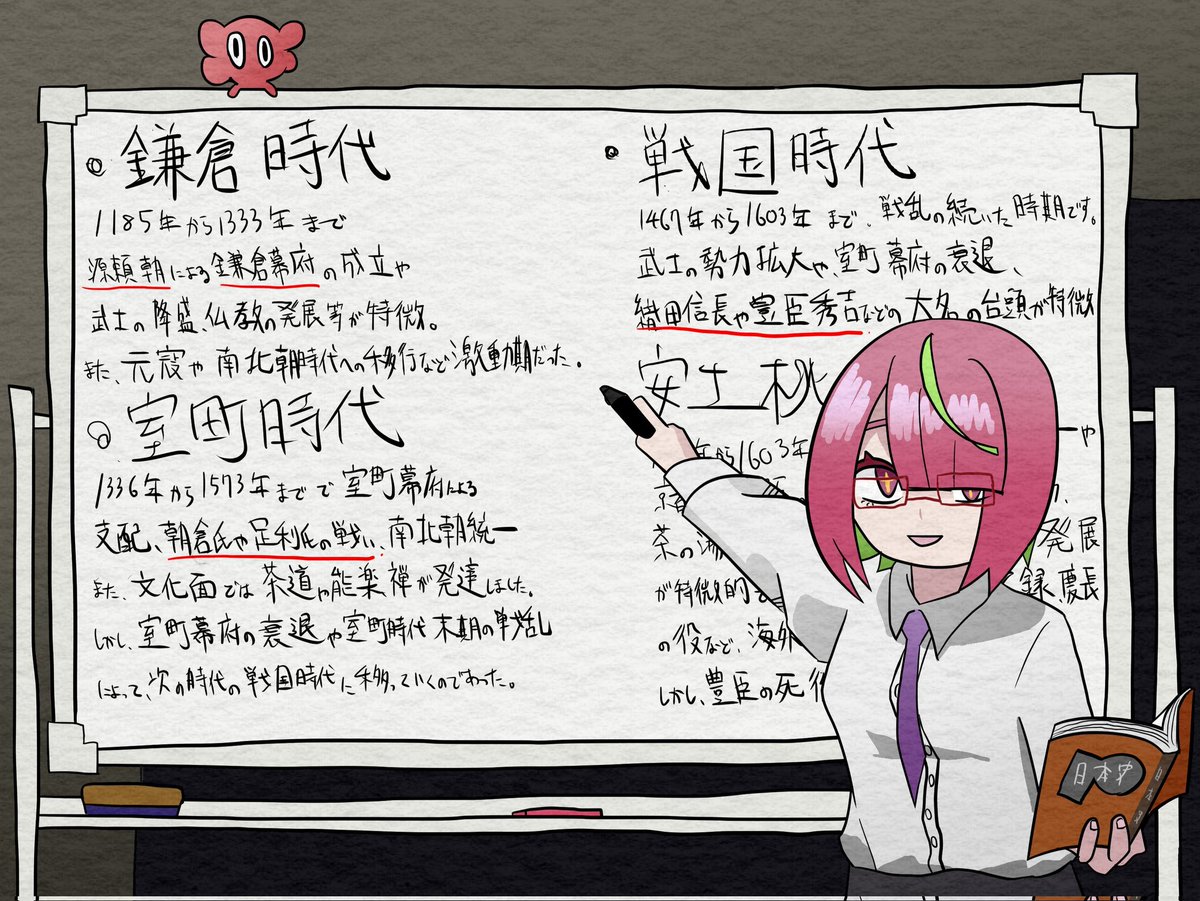 鎌倉時代
1185年から1333年まで
源頼朝による鎌倉幕府の成立や
武士の隆盛、仏教の発展等が特徴。
また、元寇や南北朝時代への移行など激動期だった。
室町時代
1336年から1573年までで室町幕府による
支配、朝倉氏や足利氏の戦い、南北朝統一
また、文化面では茶道や能楽禅が発達しました。
しかし、室町幕府の衰退や室町時代末期の戦乱
によって、次の時代の戦国時代に移っていくのであった。
戦国時代
1467年から1603年まで、戦乱の続いた時期です。
武士の勢力拡大や、室町幕府の衰退、
織田信長や豊臣秀吉などの大名の台頭が特徴
安土桃
年から1603年
一や
茶の
発展
が特徴的で
録、慶長
の役など、海外
しかし、豊臣の死後
日本史